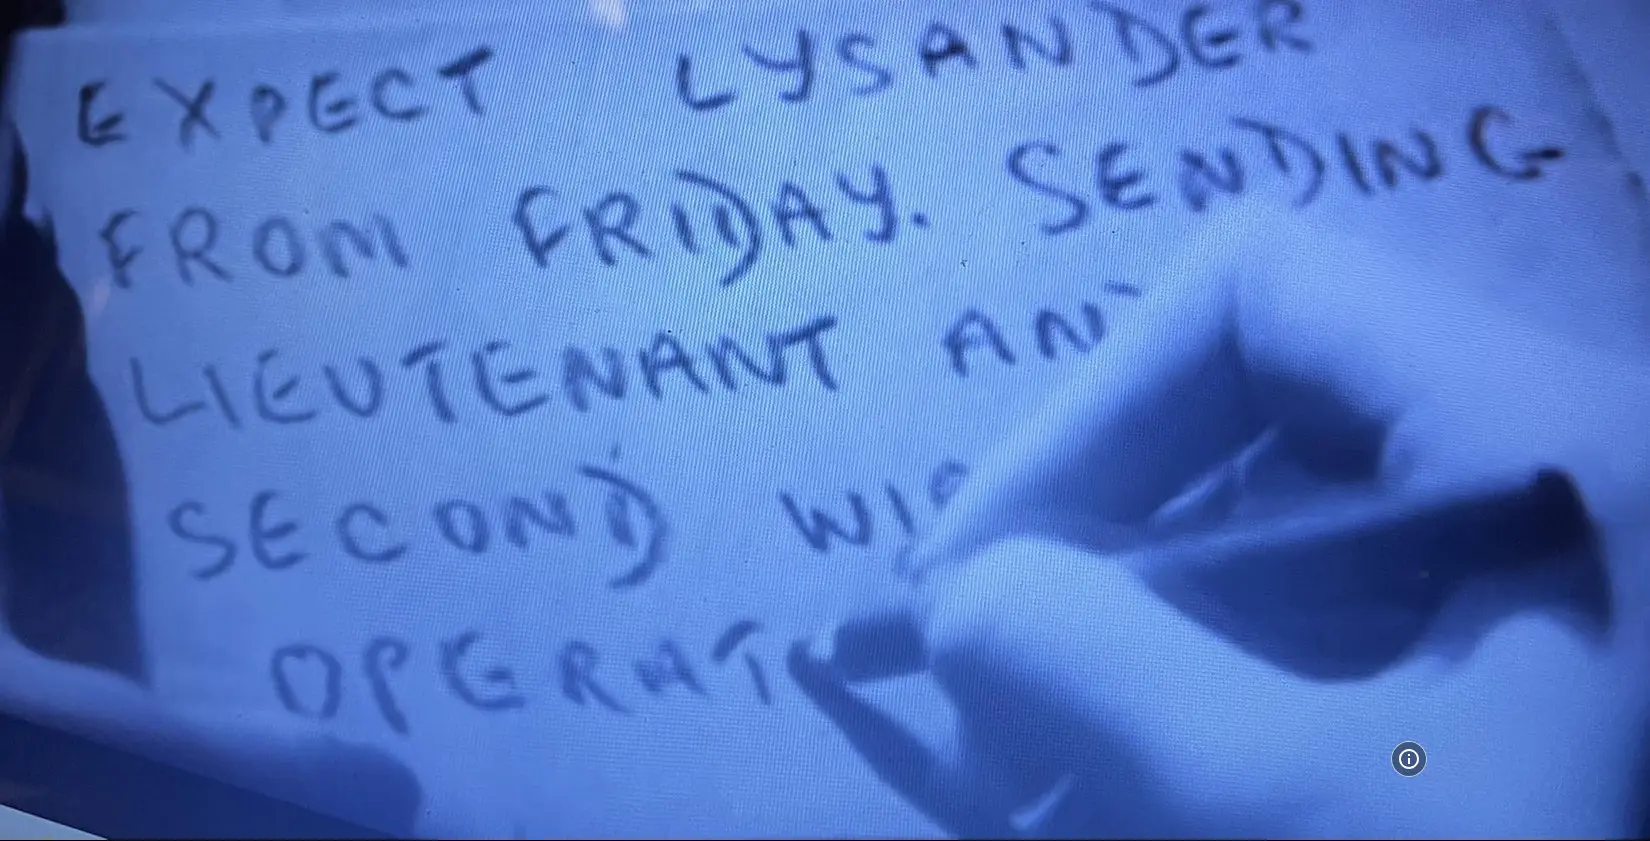 EXPECT LYSANDER
FROM FRIDAY. SENDING
LIEUTENANT
SECOND